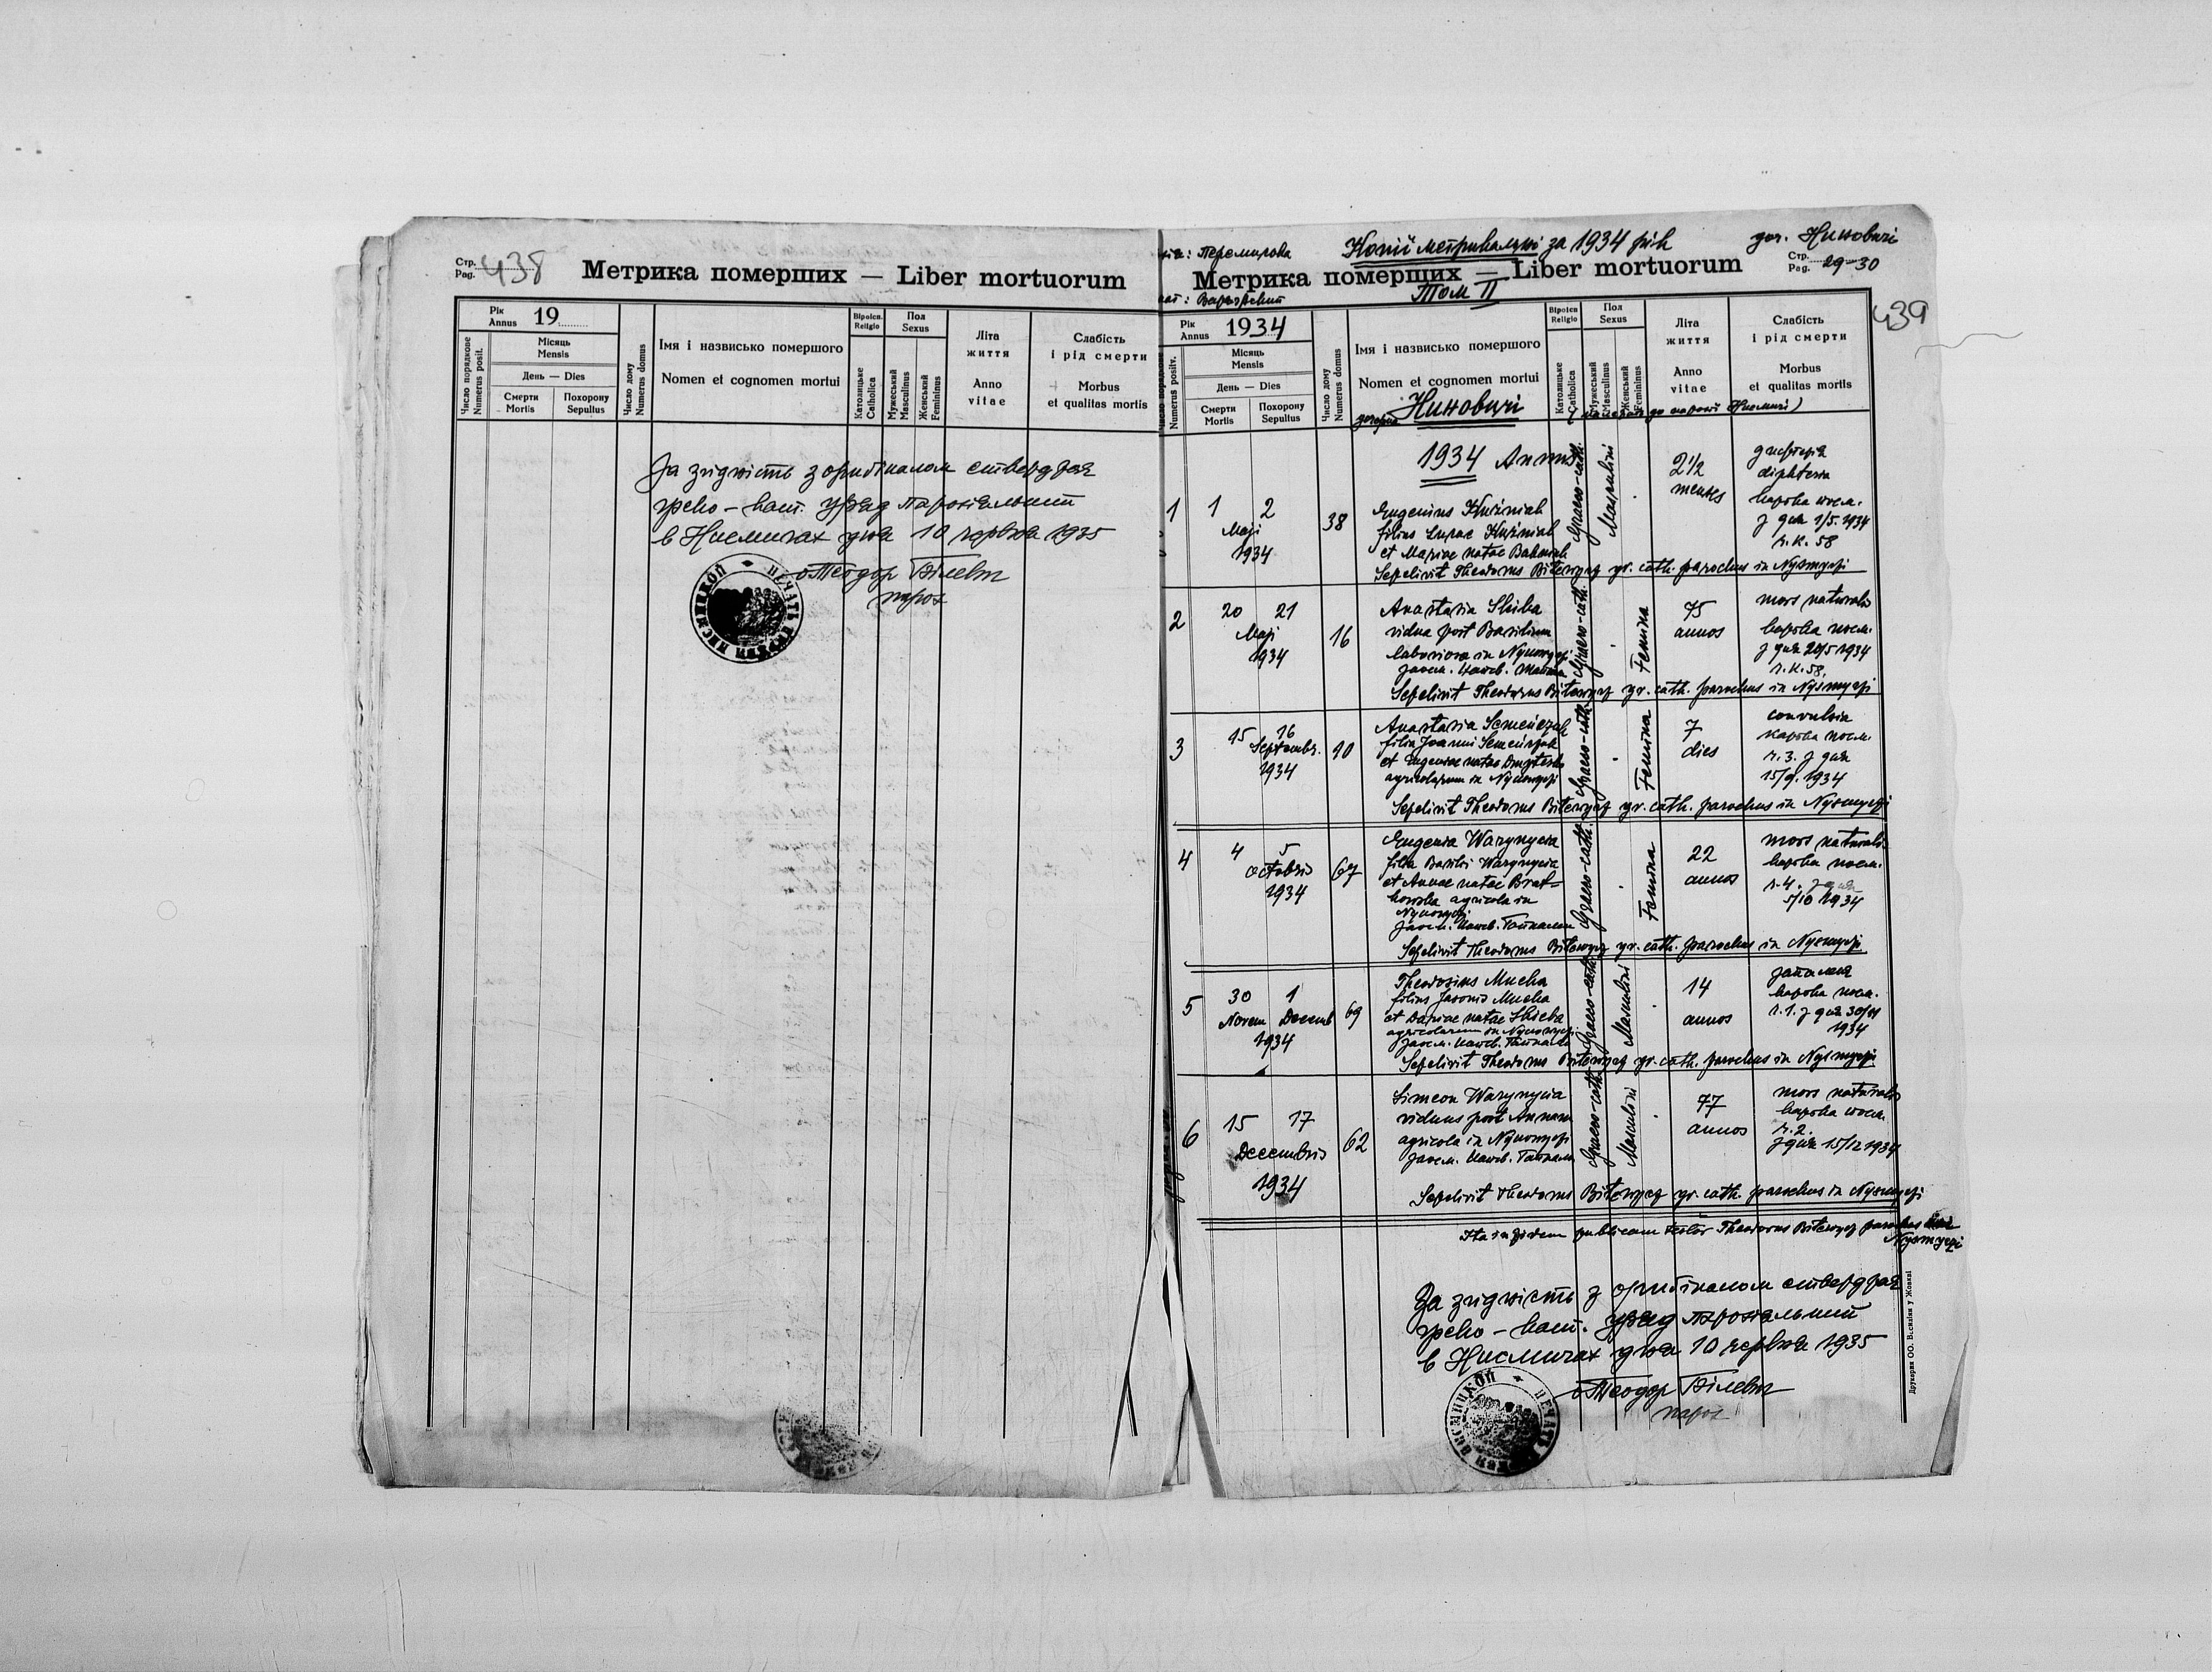 Стр.
Pag. 438
Метрика померших — Liber mortuorum
Рік
Annus 19
Місяць
Mensis
День — Dies
Смерти
Mortis
Похорону
Sepultus
Число порядкове
Numerus posit.
Число дому
Numerus domus
Імя і назвисько помершого
Nomen et cognomen mortui
Віроісп.
Religio
Католицьке
Catholica
Пол
Sexus
Мужеський
Masculinus
Женський
Femininus
Літа
життя
Anno
vitae
Слабість
і рід смерти
Morbus
et qualitas mortis
За згідність з оригіналом стверджая
греко-кат. уряд парохіяльний
в Нисмичах дня 10 червня 1935
о Теодор Білевич
парох
Перемишль
Копії метрикальні за 1934 рік
доч. Ниновичі
Метрика померших — Liber mortuorum
Стр.
Pag. 29-30
Том II
439
Рік
Annus 1934
Місяць
Mensis
День — Dies
Смерти
Mortis
Похорону
Sepultus
Numerus posit.
Число дому
Numerus domus
Імя і назвисько помершого
Nomen et cognomen mortui
Ниновичі
Віроісп.
Religio
Католицьке
Catholica
Пол
Sexus
Мужеський
Masculinus
Женський
Femininus
Літа
життя
Anno
vitae
Слабість
і рід смерти
Morbus
et qualitas mortis
1934 Annus
1
1 2
Maji
1934
38
Eugenius Kuźniak
filius Lucae Kuźniak
et Mariae natae
Graeco-cath.
Masculini
2½
menses
дифтерія
diphteria
карта посм.
з дня 1/5. 1934
ч.к. 58
Sepelivit Theodorus Bilewycz gr. cath. parochus in Nysmyczi
2
20 21
Maji
1934
16
Anastasia Skiba
vidua post Basilium
in Nynowyczi
Graeco-cath.
Femina
75
annos
mors naturalis
карта посм.
з дня 20/5 1934
ч.к. 58.
Sepelivit Theodorus Bilewycz gr. cath. parochus in Nysmyczi
3
15 16
Septembr.
1934
10
Anastasia Semeńczuk
filia Joanni Semeńczuk
et Eugeniae natae
agricolarum in Nynowyczi
Graeco-cath.
Femina
7
dies
convulsia
карта посм.
ч. 3. з дня
15/9. 1934
Sepelivit Theodorus Bilewycz gr. cath. parochus in Nysmyczi
4
4 5
Octobris
1934
67
Eugenia Warynycia
filia Basilii Warynycia
et Annae natae Brat-
kowska agricola in
Nynowyczi
Graeco-cath.
Femina
22
annos
mors naturalis
карта посм.
ч. 4. з дня
5/10 1934
Sepelivit Theodorus Bilewycz gr. cath. parochus in Nysmyczi
5
30 1
Novem Decemb
1934
69
Theodosius Mucha
filius Jasonis Mucha
et Dariae natae Skiba
agricolarum in Nynowyczi
Graeco-cath.
Masculini
14
annos
запалення
карта посм.
ч. 1. з дня 30/11
1934
Sepelivit Theodorus Bilewycz gr. cath. parochus in Nysmyczi
6
15 17
Decembris
1934
62
Simeon Warynycia
viduus post Annam
agricola in Nynowyczi
Graeco-cath.
Masculini
77
annos
mors naturalis
карта посм.
ч. 2.
з дня 15/12 1934
Sepelivit Theodorus Bilewycz gr. cath. parochus in Nysmyczi
Ita in fidem publicam testor Theodorus Bilewycz parochus
Nysmyczi
За згідність з оригіналом стверджая
греко-кат. уряд парохіяльний
в Нисмичах дня 10 червня 1935
о Теодор Білевич
парох
Друкарня ОО. Василіян у Жовкві